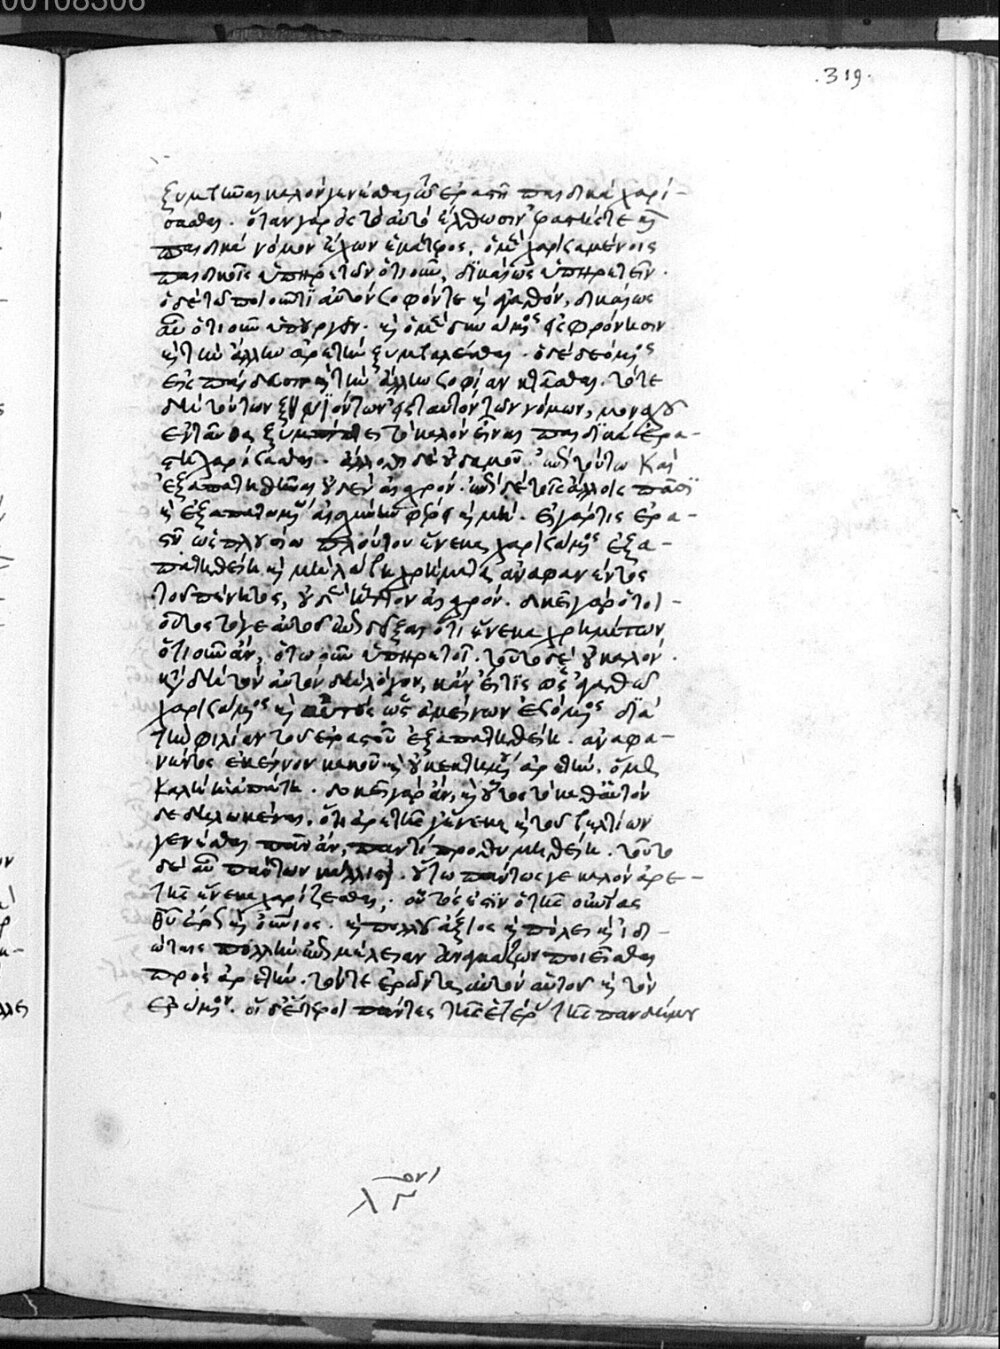 ξυμβῆναι καλὸν γενέσθαι τὸ ἐραστῇ παιδικὰ χαρί-
σασθαι. ὅταν γὰρ εἰς τὸ αὐτὸ ἔλθωσιν ἐραστής τε καὶ
παιδικὰ νόμον ἔχων ἑκάτερος, ὁ μὲν χαρισαμένοις
παιδικοῖς ὑπηρετῶν ὁτιοῦν, δικαίως ὑπηρετεῖν.
ὁ δὲ τῷ ποιοῦντι αὐτὸν σοφόν τε καὶ ἀγαθόν, δικαίως
αὖ ὁτιοῦν ὑπουργεῖν. καὶ ὁ μὲν δυνάμενος εἰς φρόνησιν
καὶ τὴν ἄλλην ἀρετὴν ξυμβαλέσθαι. ὁ δὲ δεόμενος
εἰς παίδευσιν καὶ τὴν ἄλλην σοφίαν κτᾶσθαι. τότε
δὴ τούτων ξυνϊόντων εἰς ταυτὸν τῶν νόμων, μοναχοῦ
ἐνταῦθα ξυμπίπτει τὸ καλὸν εἶναι παιδικὰ ἐρα-
στῇ χαρίσασθαι. ἄλλοθι δὲ οὐδαμοῦ. ἐπὶ τούτῳ καὶ
ἐξαπατηθῆναι οὐδὲν αἰσχρόν. ἐπὶ δὲ τοῖς ἄλλοις πᾶσϊ
καὶ ἐξαπατωμένῳ αἰσχύνην φέρει καὶ μή. εἰ γάρ τις ἐρα-
στῇ ὡς πλουσίῳ πλούτου ἕνεκα χαρισάμενος ἐξα-
πατηθείη καὶ μὴ λάβῃ χρήματα ἀναφανέντος
τοῦ πένητος, οὐδὲν ἧττον αἰσχρόν. δοκεῖ γὰρ ὁ τοι-
οῦτος τό γε αὐτοῦ ἐπιδεῖξαι ὅτι ἕνεκα χρημάτων
ὁτιοῦν ἄν, ὁτῳοῦν ὑπηρετοῖ. τοῦτο δὲ οὐ καλόν.
κατὰ τὸν αὐτὸν δὴ λόγον, κἂν εἴ τις ὡς ἀγαθῷ
χαρισάμενος καὶ αὐτὸς ὡς ἀμείνων ἐσόμενος διὰ
τὴν φιλίαν τοῦ ἐραστοῦ ἐξαπατηθείη. ἀναφα-
νέντος ἐκείνου κακοῦ καὶ οὐ κεκτημένου ἀρετήν. ὅμως
καλὴ ἡ ἀπάτη. δοκεῖ γὰρ ἄν, καὶ οὗτος τὸ καθ' αὑτὸν
δεδηλωκέναι, ὅτι ἀρετῆς γ' ἕνεκα καὶ τοῦ βελτίων
γενέσθαι πᾶν ἄν, παντὶ προθυμηθείη. τοῦτο
δὲ αὖ πάντων κάλλιστον. οὕτω πάντως γε καλὸν ἀρε-
τῆς ἕνεκα χαρίζεσθαι. οὗτός ἐστϊν ὁ τῆς οὐρανίας
θεοῦ ἔρως καὶ οὐράνιος. καὶ πολλοῦ ἄξιος καὶ πόλει καὶ ἰδι-
ώταις πολλὴν ἐπιμέλειαν ἀναγκάζων ποιεῖσθαι
πρὸς ἀρετήν. τόν τε ἐρῶντα αὐτὸν αὑτοῦ καὶ τὸν
ἐρώμενον. οἱ δ' ἕτεροι πάντες τῆς ἑτέρου τῆς πανδήμου